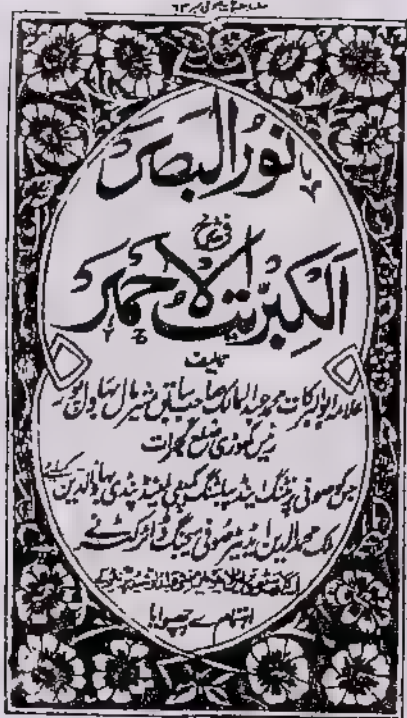 نور البصر
فی شرح
الکبریت الاحمر
تالیف
علامہ ابوالبرکات محمد عبدالمالک صاحب سابق مشیر مال بہاولپور
رئیس کھوڑی ضلع گجرات
جس کو صوفی پرنٹنگ اینڈ پبلشنگ کمپنی لمیٹڈ پنڈی بہاؤالدین کیلئے
ملک محمد الدین ایڈیٹر صوفی منیجنگ ڈائرکٹر نے
اہتمام سے چھپوایا